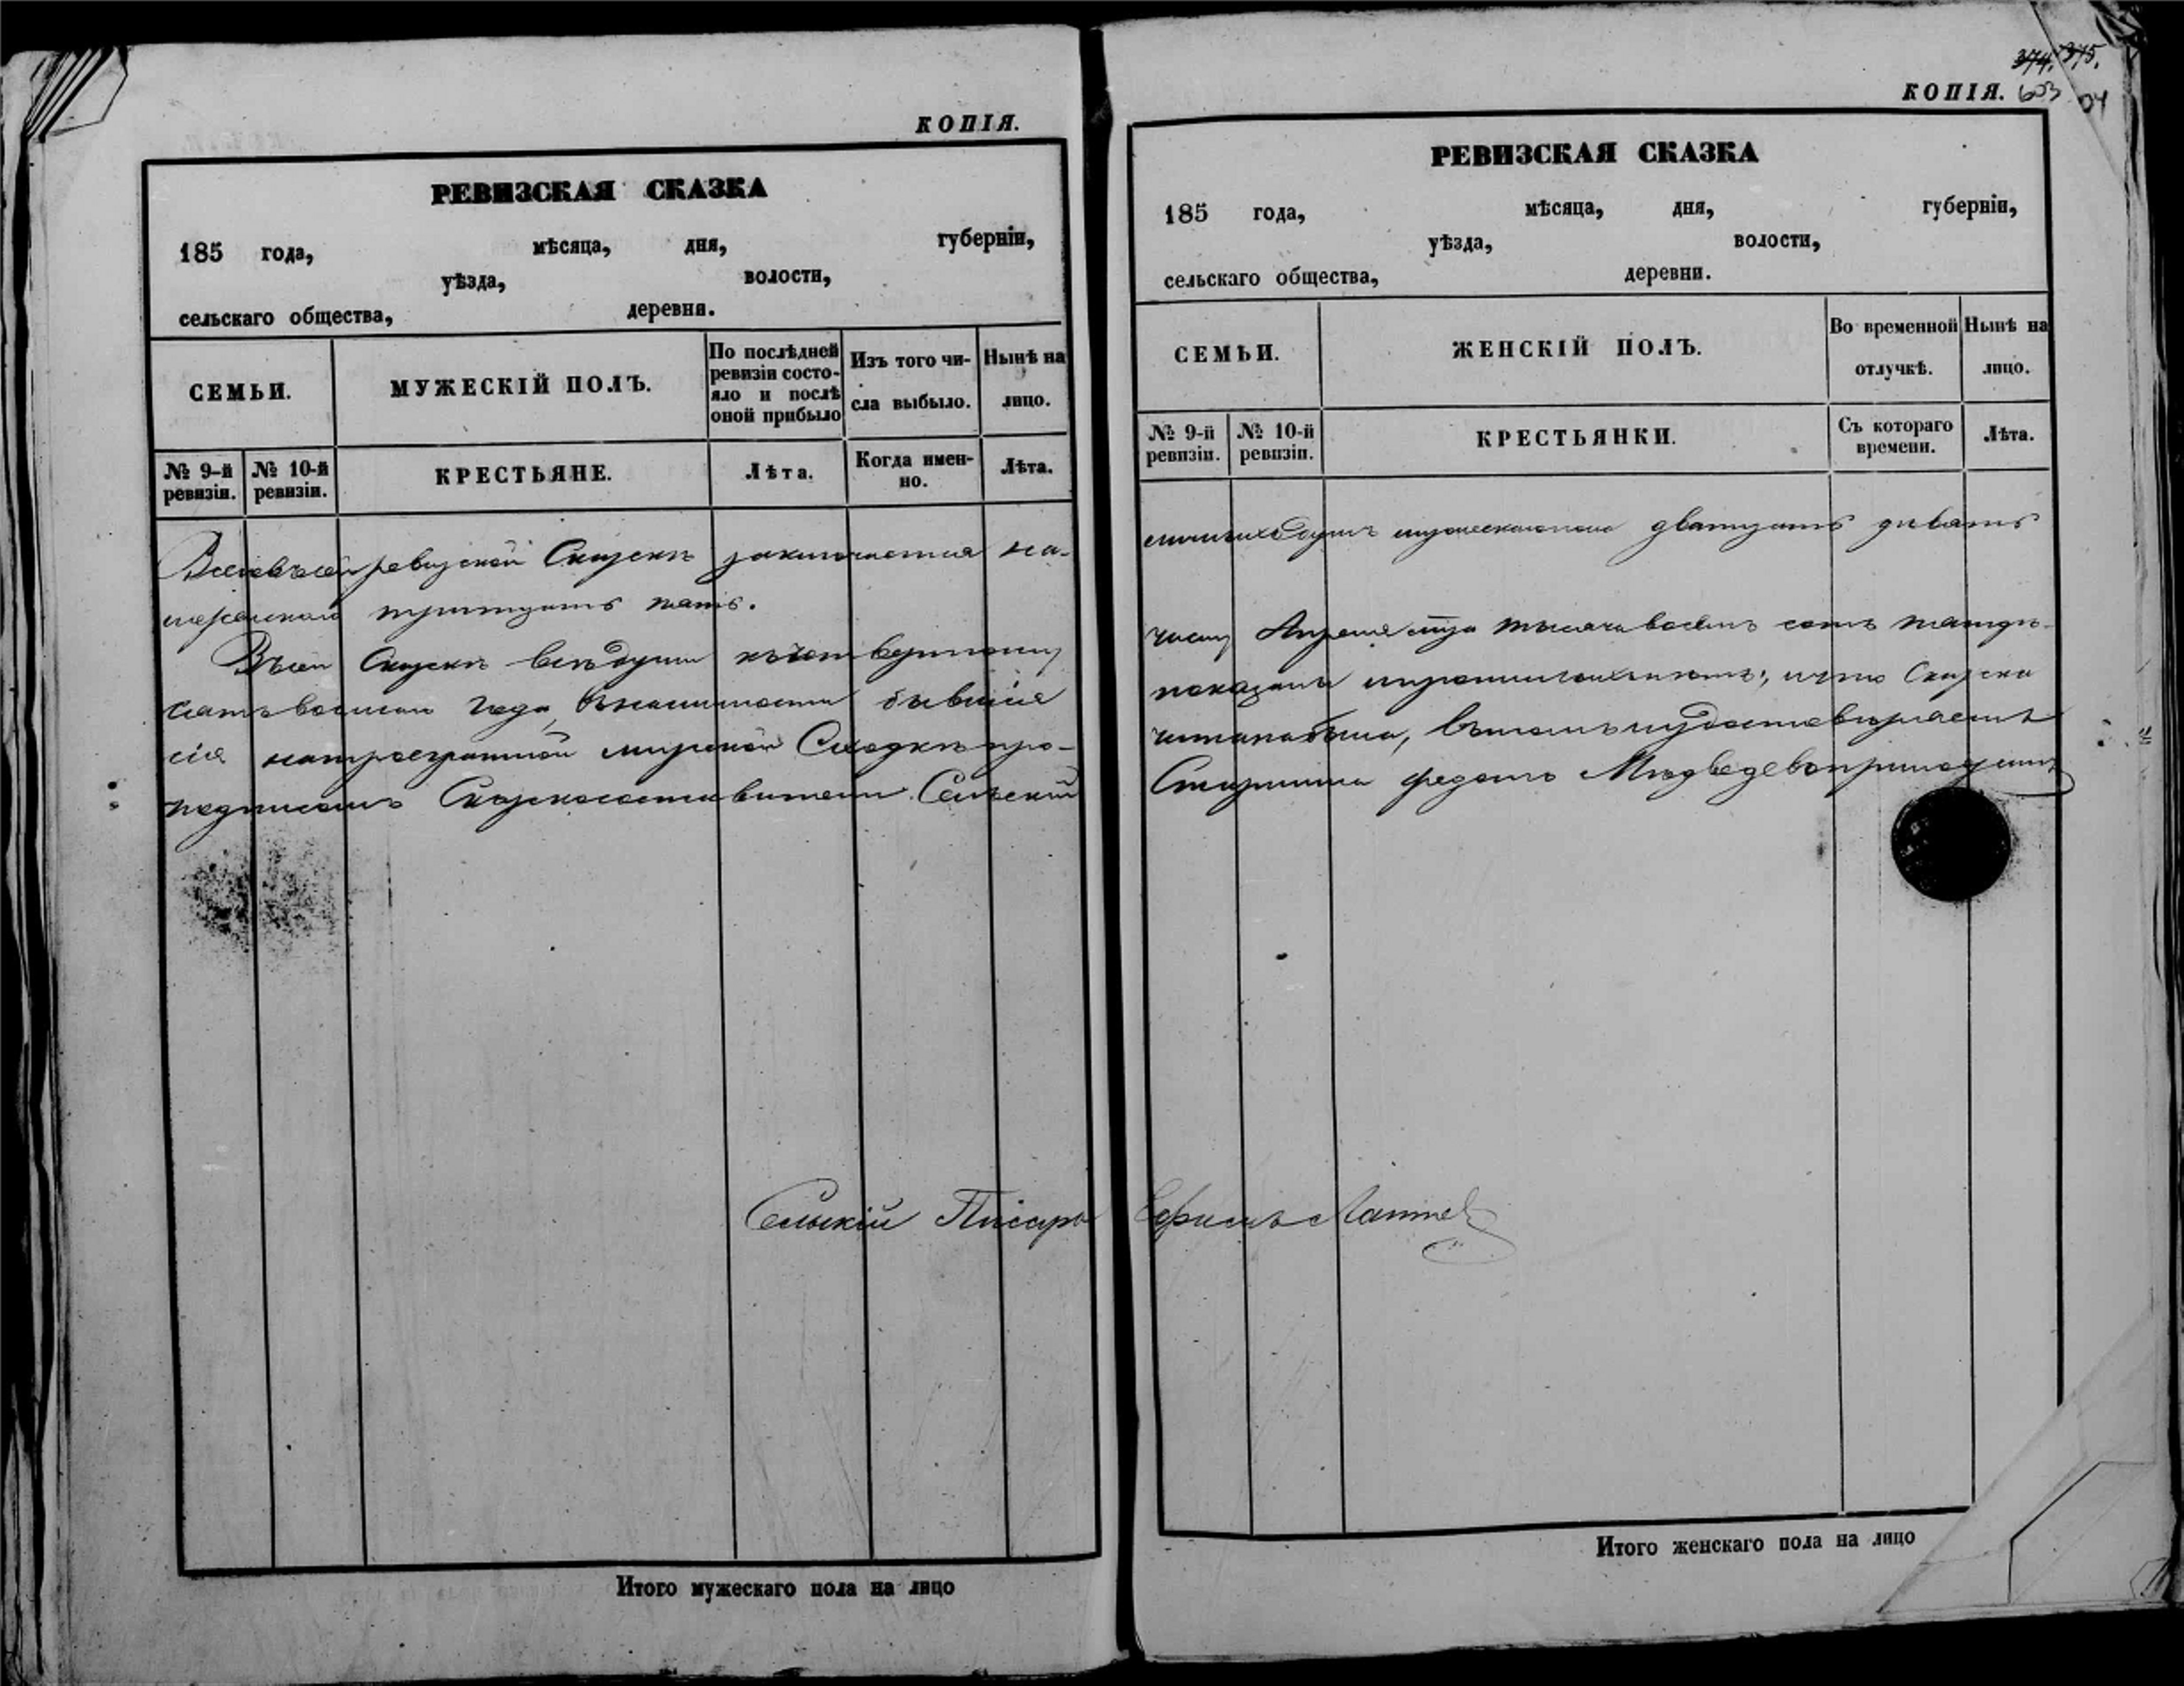 КОПІЯ.
РЕВИЗСКАЯ СКАЗКА
185 года, мѣсяца, дня, губерніи,
уѣзда, волости,
сельскаго общества, деревни.
СЕМЬИ.
МУЖЕСКІЙ ПОЛЪ.
По послѣдней
ревизіи состо-
яло и послѣ
оной прибыло
Изъ того чи-
сла выбыло.
Нынѣ на
лицо.
№ 9-й
ревизіи.
№ 10-й
ревизіи.
КРЕСТЬЯНЕ.
Лѣта.
Когда имен-
но.
Лѣта.
Всего въ сей ревизской Сказкѣ заключается на-
женскаго тритцать пять.
Въ сей Сказкѣ всѣ души къ четвертому
сятъ восьмаго года, въ наличности бывшіе
сія мирской Сходкѣ про-
подписомъ Сказкосоставители Сельскій
Сельскій Писарь
Итого мужескаго пола на лицо
374. 375.
КОПІЯ. 603
РЕВИЗСКАЯ СКАЗКА
185 года, мѣсяца, дня, губерніи,
уѣзда, волости,
сельскаго общества, деревни.
СЕМЬИ.
ЖЕНСКІЙ ПОЛЪ.
Во временной
отлучкѣ.
Нынѣ на
лицо.
№ 9-й
ревизіи.
№ 10-й
ревизіи.
КРЕСТЬЯНКИ.
Съ котораго
времени.
Лѣта.
личныхъ душъ мужескаго пола дватцать дивять
числу Апреля тысяча восемь сотъ пятде-
показаны и что Сказка
читана была, въ томъ и удостовѣряемъ
Старшина Федотъ Медведевъ
Ефимъ Лаптев
Итого женскаго пола на лицо